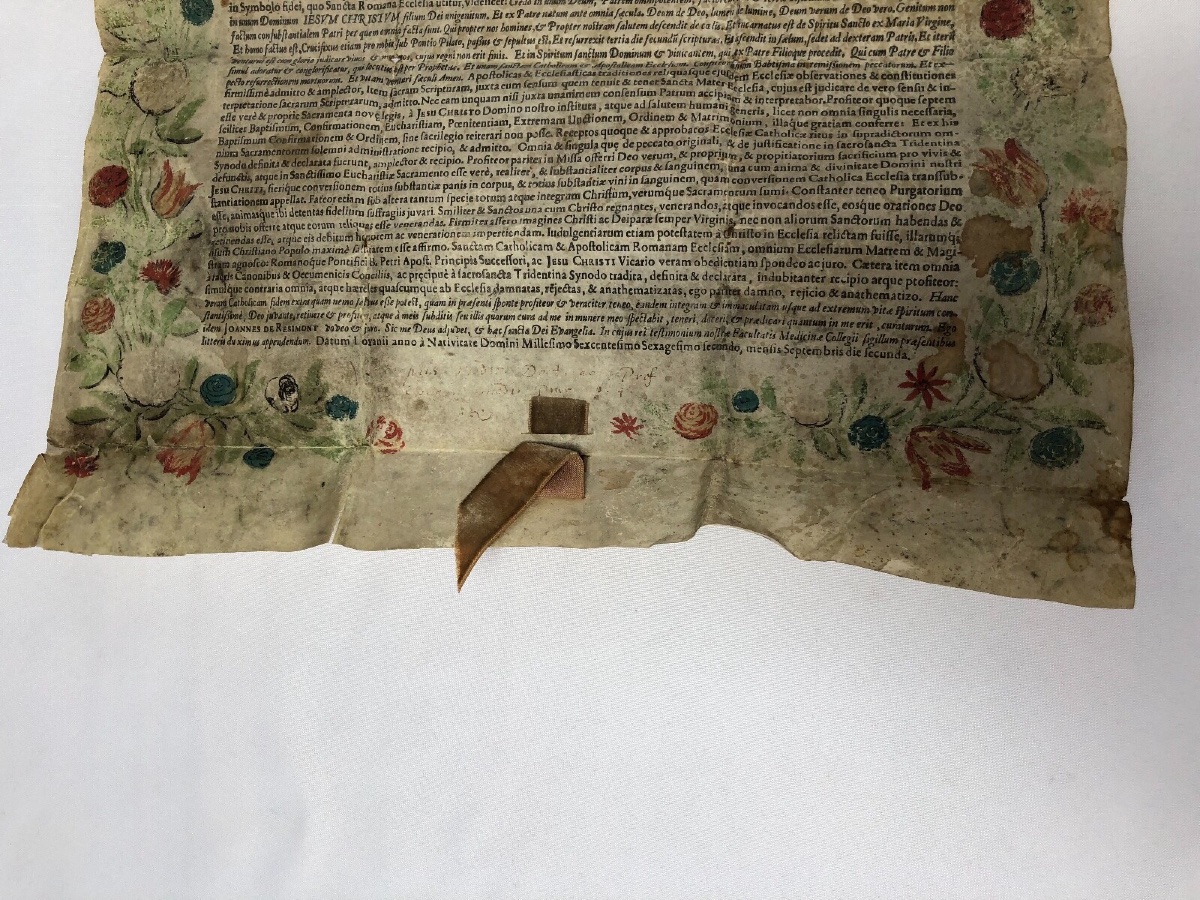 in Symbolo fidei, quo Sancta Romana Ecclesia utitur, videlicet: Credo in unum Deum, Patrem omnipotentem,
in unum Dominum IESVM CHRISTVM filium Dei unigenitum. Et ex Patre natum ante omnia sæcula. Deum de Deo, lumen de lumine, Deum verum de Deo vero. Genitum non
factum consubstantialem Patri per quem omnia facta sunt. Qui propter nos homines, & Propter nostram salutem descendit de cælis. Et incarnatus est de Spiritu Sancto ex Maria Virgine,
Et homo factus est, Crucifixus etiam pro nobis sub Pontio Pilato, passus & sepultus est. Et resurrexit tertia die secundum scripturas, Et ascendit in cælum, sedet ad dexteram Patris, Et iterum
venturus est cum gloria judicare vivos & mortuos, cujus regni non erit finis. Et in Spiritum sanctum Dominum & vivificantem, qui ex Patre Filioque procedit, Qui cum Patre & Filio
simul adoratur & conglorificatur, qui locutus est per Prophetas. Et unam sanctam Catholicam & Apostolicam Ecclesiam. Confiteor unum Baptisma in remissionem peccatorum. Et ex-
pecto resurrectionem mortuorum. Et vitam venturi sæculi Amen. Apostolicas & Ecclesiasticas traditiones reliquasque ejusdem Ecclesiæ observationes & constitutiones
firmissime admitto & amplector, Item sacram Scripturam, juxta eum sensum quem tenuit & tenet Sancta Mater Ecclesia, cujus est judicare de vero sensu & in-
terpretatione sacrarum Scripturarum, admitto. Nec eam unquam nisi juxta unanimem consensum Patrum accipiam & interpretabor. Profiteor quoque septem
esse verè & propriè Sacramenta novę legis, à JESU CHRISTO Domino nostro instituta, atque ad salutem humani generis, licet non omnia singulis necessaria,
scilicet Baptismum, Confirmationem, Eucharistiam, Pœnitentiam, Extremam Unctionem, Ordinem & Matrimonium, illaque gratiam conferre: Et ex his
Baptismum Confirmationem & Ordinem, sine sacrilegio reiterari non posse. Receptos quoque & approbatos Ecclesiæ Catholicæ ritus in supradictorum om-
nium Sacramentorum solemni administratione recipio, & admitto. Omnia & singula que de peccato originali, & de justificatione in sacrosancta Tridentina
Synodo definita & declarata fuerunt, amplector & recipio. Profiteor pariter in Missa offerri Deo verum, & proprium, & propitiatorium sacrificium pro vivis &
defunctis, atque in Sanctissimo Eucharistiæ Sacramento esse verè, realiter, & substantialiter corpus & sanguinem, una cum anima & divinitate Domini nostri
JESU CHRISTI, fierique conversionem totius substantiæ panis in corpus, & totius substātiæ vini in sanguinem, quam conversionem Catholica Ecclesia transub-
stantiationem appellat. Fateor etiam sub altera tantum specie totum atque integrum Christum, verumque Sacramentum sumi. Constanter teneo Purgatorium
esse, animasque ibi detentas fidelium suffragiis juvari. Similiter & Sanctos una cum Christo regnantes, venerandos, atque invocandos esse, eosque orationes Deo
pro nobis offerre atque eorum reliquias esse venerandas. Firmiter assero imagines Christi ac Deiparæ semper Virginis, nec non aliorum Sanctorum habendas &
retinendas esse, atque eis debitum honorem ac venerationem impertiendam. Indulgentiarum etiam potestatem à Christo in Ecclesia relictam fuisse, illarumque
usum Christiano Populo maxime salutarem esse affirmo. Sanctam Catholicam & Apostolicam Romanam Ecclesiam, omnium Ecclesiarum Matrem & Magi-
stram agnosco: Romanoque Pontifici B. Petri Apost. Principis Successori, ac JESU CHRISTI Vicario veram obedientiam spondeo ac juro. Cætera item omnia
à sacris Canonibus & Oecumenicis Conciliis, ac præcipuè à sacrosancta Tridentina Synodo tradita, definita & declarata, indubitanter recipio atque profiteor:
simulque contraria omnia, atque hæreses quascumque ab Ecclesia damnatas, rejectas, & anathematizatas, ego pariter damno, rejicio & anathematizo. Hanc
veram Catholicam fidem extra quam nemo salvus esse potest, quam in præsenti sponte profiteor & veraciter teneo, eandem integram & immaculatam usque ad extremum vitæ spiritum con-
stantissimè, Deo juvante, retinere & profiteri, atque à meis subditis seu illis quorum cura ad me in munere meo spectabit, teneri, doceri, & prædicari quantum in me erit, curaturum. Ego
idem JOANNES DE RESIMONT voveo & juro. Sic me Deus adjuvet, & hæc sancta Dei Evangelia. In cujus rei testimonium nostræ Facultatis Medicinæ Collegii sigillum præsentibus
litteris duximus appendendum. Datum Lovanii anno à Nativitate Domini Millesimo Sexcentesimo Sexagesimo secundo, mensis Septembris die secunda.